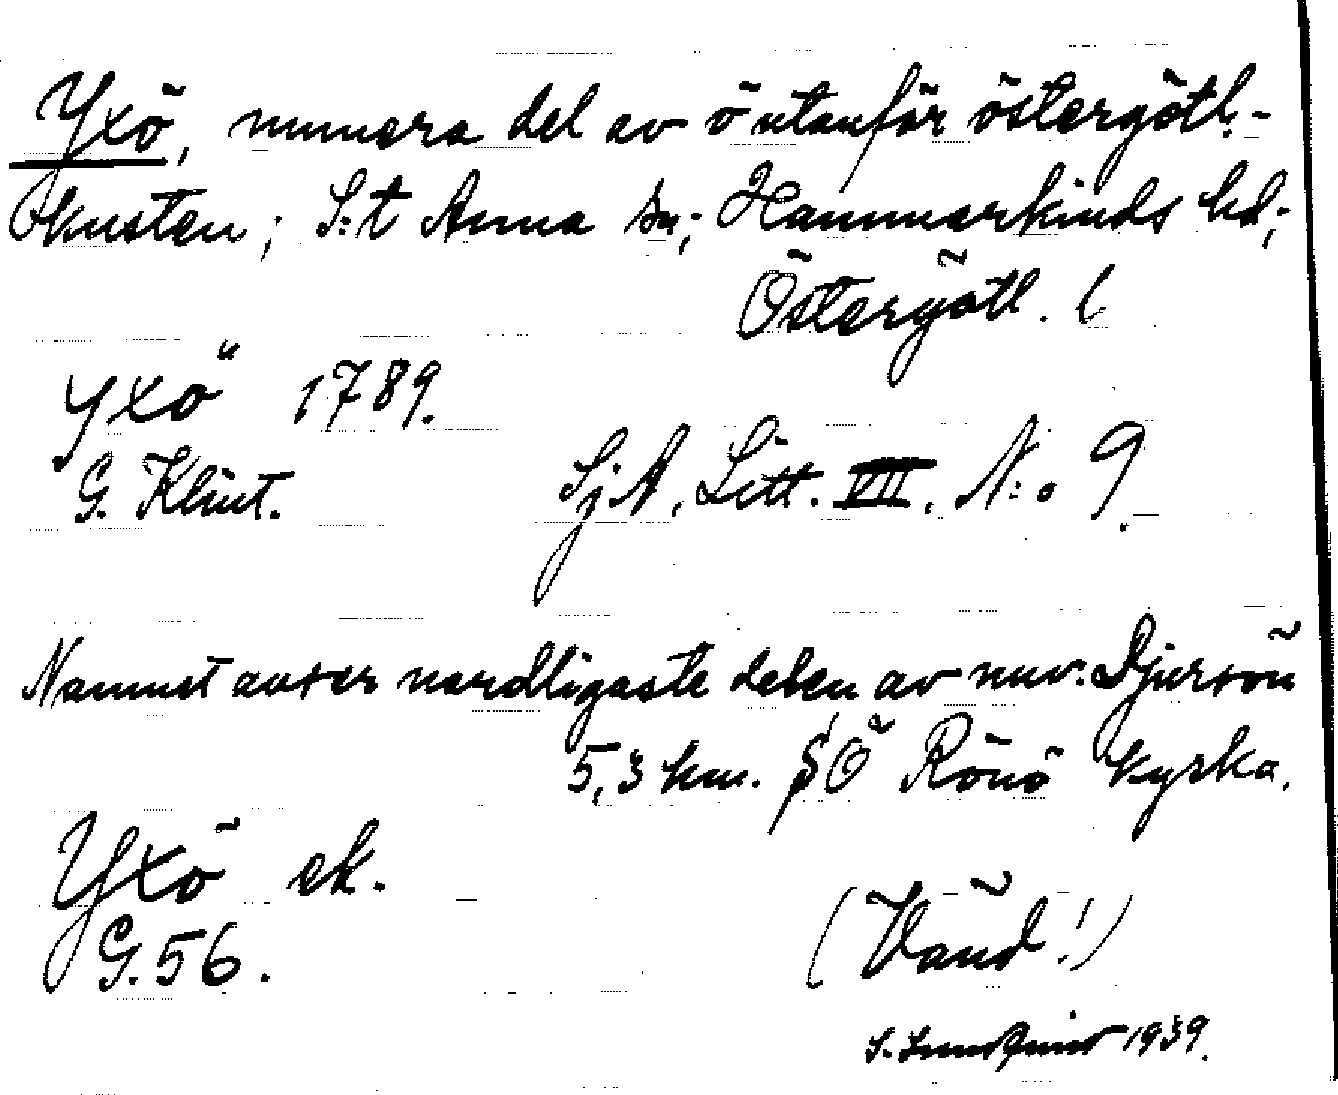 Yxö, numera del av ö utanför östergötl.-
kusten; S:t Anna sn; Hammarkinds hd;
Östergötl. l
Yxö 1789.
G. Klint. SjA, Litt. VII. N:o 9.
Namnet avser nordligaste delen av nuv. Djursön
5,3 km. SÖ Rönö kyrka.
Yxö ek.
G. 56.
(Vänd!)
S. Lundquist 1939.